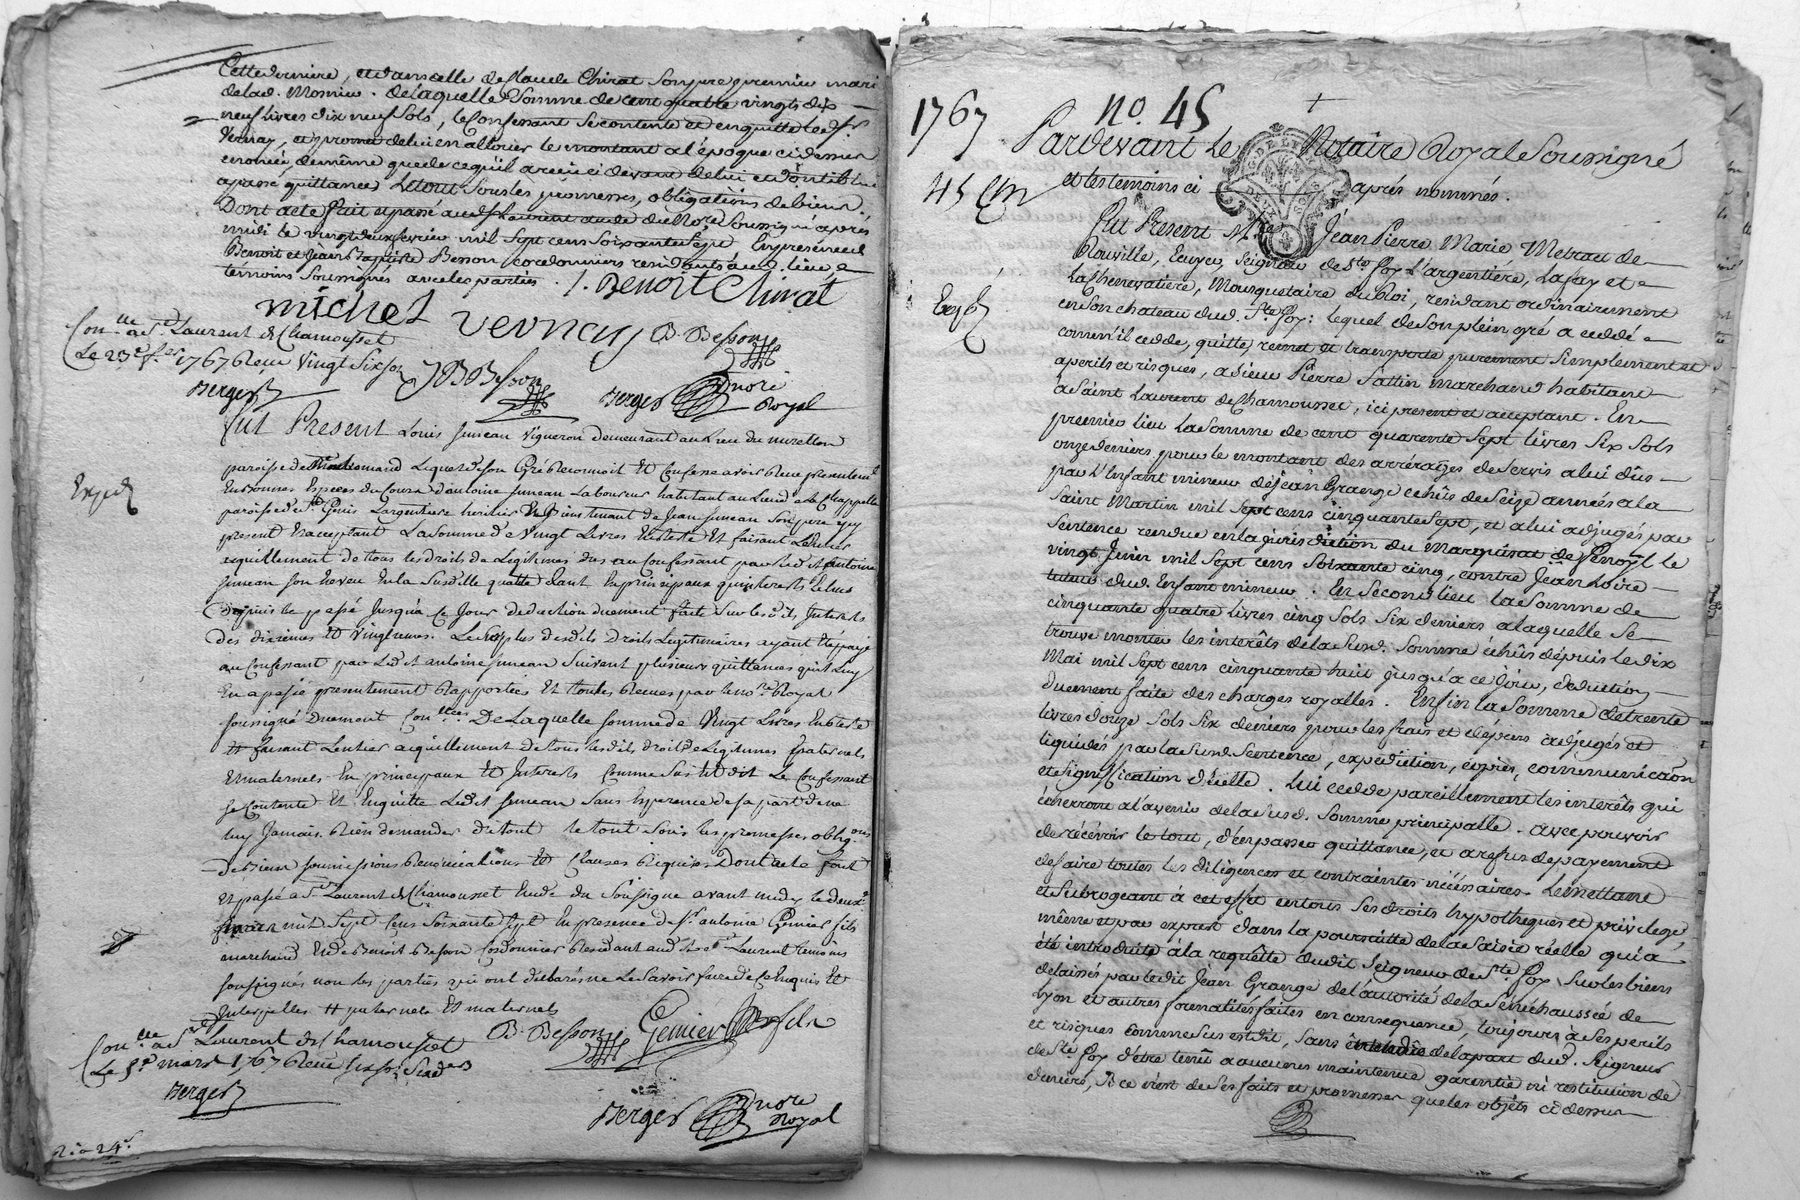 Cette derniere, et dans celle de Claude Chirat son pere premier mari
de lad. Monier. de laquelle somme de cent quatre vingts dix
neuf livres dix neuf sols, le Confessant se contente et en quitte led. sr.
Vernay, et promet de lui en allouer le montant a l'époque ci dessus
enoncée, de même que de ce qu'il a reçu ci devant de lui et dont il lui
a passé quittance. Le tout sous les promesses, obligations de biens.
Dont acte fait et passé aud. St Laurent étude du Nore. soussigné après
midi le vingt deux fevrier mil sept cens soixante sept En présence de
Benoit et Jean Baptiste Besson Cordonniers residants aud. lieu
témoins soussignés avec les parties. /. Benoit Chirat
michel vernay B. Besson
Con.lle a St. Laurent de Chamousset
Le 23e f.er 1767 Reçu vingt six sols
Berger JB Besson Berger Nore Royal
Fut Present Louis Juneau Vigneron demeurant au Lieu du murellon
paroisse de Lequel de son Gré Reconnoit Et Confesse avoir Reçu presentement
En bonnes Especes du Cours d'antoine Juneau Laboureur habitant au Lieu de La Chappelle
paroisse de St. Genis Largentiere heritier de Jean Juneau son pere icy
present Et acceptant La somme de Vingt Livres En reste Et faisant L'entier
aquillement de tous les droits de Legitimes dus au Confessant par led. antoine
Juneau son neveu En la susdite qualité tant En principaux qu'interests Echus
depuis le passé Jusqu'a ce Jour deduction duement faite sur lesdits Interests
des dixiemes Et vingtiemes. Le surplus desdits droits Legitimaires ayant Eté payé
au Confessant par Led. antoine Juneau suivant plusieurs quittances qu'il luy
En a passé presentement Rapportées Et toutes Recues par le no.re Royal
soussigné duement Con.llées De Laquelle somme de Vingt Livres En reste
Et faisant Lentier aquillement de tous lesdits droits de Legitimes paternels
Et maternels En principaux Et Interests Comme sus Est dit Le Confessant
se Contente Et En quitte Led. Juneau sans Esperence de sa part de ne
luy Jamais Rien demander du tout le tout sous les promesses oblig.ons
de biens soumissions Renonciations Et Clauses Requises Dont acte fait
Et passé a St. Laurent de Chamousset Etude du soussigné avant midy le deux
mil sept Cens soixante sept En presence de sr. antoine Genier fils
marchand Et de Benoit Besson Cordonnier Residant aud. St. Laurent temoins
soussignés non les parties qui ont déclaré ne Le savoir faire de ce Enquis Et
Interpellés # paternels Et maternels
B. Besson Genier fils
Con.lle a St. Laurent de Chamousset
Le 8e mars 1767 Reçu six sols
Berger
Berger Nore Royal
1767 no. 45
Pardevant Le Notaire Royal Soussigné
et les temoins ci après nommés.
45 Em
Fut Present Mre. Jéan Pierre Marie Metrau de
Rouville, Ecuyer, Seigneur de Ste Foy L'argentière, La fay et
La Chenevatière, Mousquetaire du Roi, residant ordinairement
en son chateau dud. Ste Foy: lequel de son plein gré a ceddé
comm'il cedde, quitte, remet et transporte purement simplement et
Expé
a perils et risques, a sieur Pierre Sattin marchand habitant
a Saint Laurent de Chamousset, ici present et acceptant. En
premier lieu La somme de cent quarente sept livres six sols
onze deniers pour le montant des arrérages de servis a lui dûs
par L'Enfant mineur de Jéan Grange echûs de seize années a la
Saint Martin mil sept cens cinquante sept, et a lui adjugés par
sentence rendue en la jurisdiction du Marquisat de le
vingt Juin mil sept cens soixante cinq, contre Jéan Loire
tuteur dud. Enfant mineur. En second lieu la somme de
cinquante quatre livres cinq sols six deniers a laquelle se
trouve monter les interêts de la susd. somme échûs dépuis le dix
Mai mil sept cens cinquante huit jusqu'a ce jour, deduction
duement faite des charges royalles. Enfin la somme de trente
livres douze sols six deniers pour les frais et dépens adjugés et
liquidés par la susd. sentence, expedition, copies, communication
et signification d'icelle. Lui cedde pareillement les interêts qui
courront a l'avenir de la susd. somme principalle. avec pouvoir
de récévoir le tout, d'en passer quittance, et a refus de payement
de faire toutes les diligences et contraintes nécéssaires. Le mettant
et subrogeant à cet effet en tous ses droits hypotheques et privileges
même et par exprés dans la poursuitte de la saisie réelle qui a
été introduite a la requête dudit Seigneur de Ste Foy sur les biens
delaissés par ledit Jean Grange de l'autorité de la Sénéchaussée de
Lyon et autres formalités faites en consequence, toujours a ses perils
et risques comme sus est dit, sans de la part dud. Seigneur
de Ste Foy d'être tenu a aucunes maintenue garentie ni restitution de
deniers, si ce n'est de ses faits et promesses que les objets ci dessus